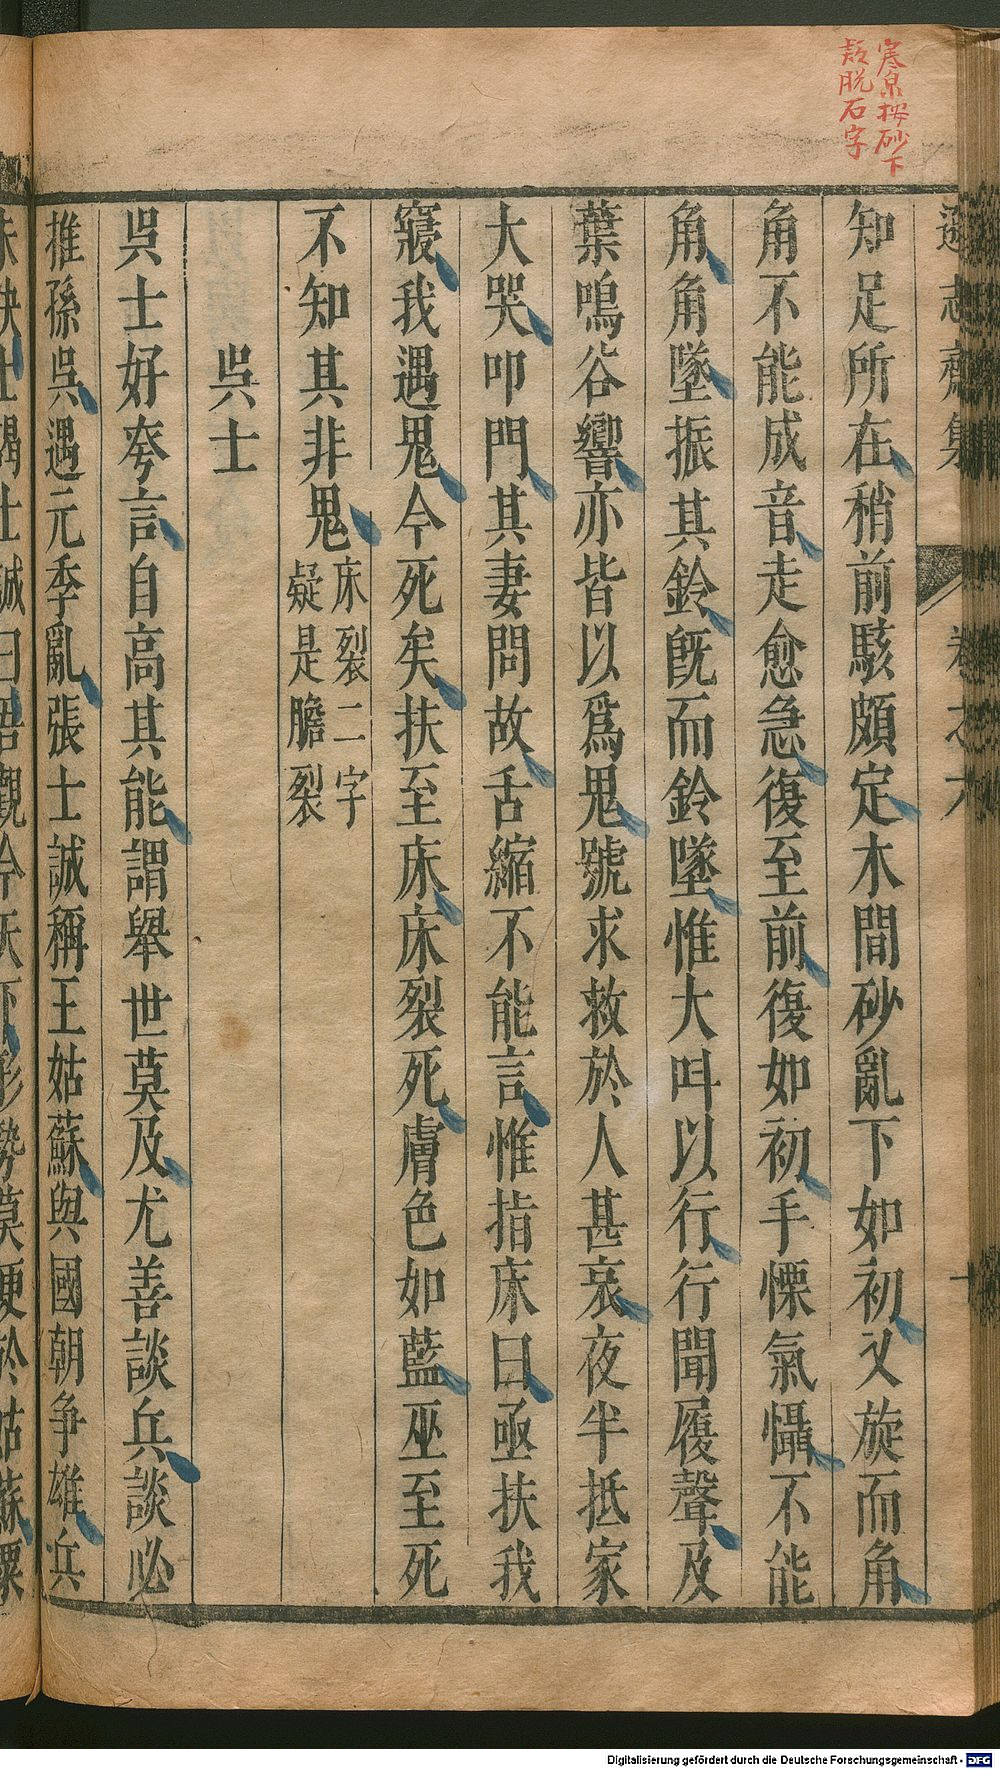 寒泉按砂下
疑脱石字
遜志齋集 卷之六
知足所在稍前駭頗定木間砂亂下如初又旋而角
角不能成音走愈急復至前復如初手慄氣懾不能
角角墜振其鈴旣而鈴墜惟大呌以行行聞履聲及
葉鳴谷響亦皆以爲鬼號求救於人甚哀夜半抵家
大哭叩門其妻問故舌縮不能言惟指床曰亟扶我
寢我遇鬼今死矣扶至床床裂死膚色如藍巫至死
不知其非鬼床裂二字疑是膽裂
吳士
吳士好夸言自高其能謂舉世莫及尤善談兵談必
推孫吳遇元季亂張士誠稱王姑蘇與國朝争雄兵
士謁士誠曰吾觀今天下形勢莫便於姑蘇粟
Digitalisierung gefördert durch die Deutsche Forschungsgemeinschaft - DFG